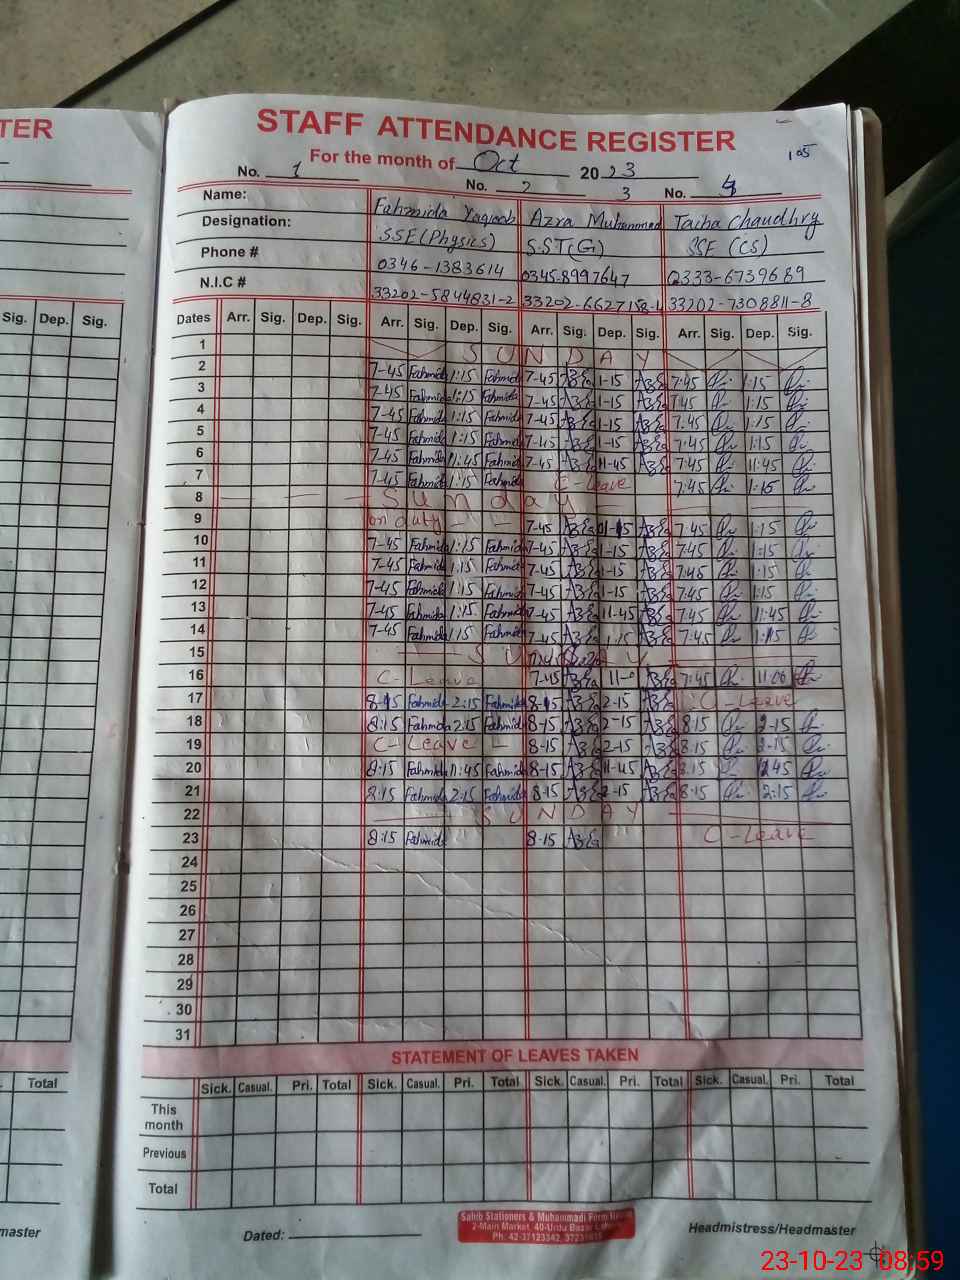 TER
STAFF ATTENDANCE REGISTER
For the month of Oct 2023
105
No. 1 No. 2 3 No. 4
Name: Fahmida Yaqoob Azra Muhammad Taiba Chaudhry
Designation: SSE(Physics) S.ST(G) SSE (CS)
Phone # 0346-1383614 0345-8997647 0333-6739689
N.I.C # 33202-5844831-2 33202-6627158-1 33202-7308811-8
Sig. Dep. Sig.
Dates Arr. Sig. Dep. Sig. Arr. Sig. Dep. Sig. Arr. Sig. Dep. Sig. Arr. Sig. Dep. Sig.
1 SUNDAY
2 7-45 Fahmida 1:15 Fahmida 7-45 1-15 7:45 1:15
3 7-45 Fahmida 1:15 Fahmida 7-45 1-15 7:45 1:15
4 7-45 Fahmida 1:15 Fahmida 7-45 1-15 7:45 1:15
5 7-45 Fahmida 1:15 Fahmida 7-45 1-15 7:45 1:15
6 7-45 Fahmida 11:45 Fahmida 7-45 11-45 7:45 11:45
7 7-45 Fahmida 1:15 Fahmida C-Leave 7:45 1:15
8 Sunday
9 on duty - - 7-45 1-15 7:45 1:15
10 7-45 Fahmida 1:15 Fahmida 7-45 1-15 7:45 1:15
11 7-45 Fahmida 1:15 Fahmida 7-45 1-15 7:45 1:15
12 7-45 Fahmida 1:15 Fahmida 7-45 1-15 7:45 1:15
13 7-45 Fahmida 1:15 Fahmida 7-45 11-45 7:45 11:45
14 7-45 Fahmida 1:15 Fahmida 7-45 1-15 7:45 1:15
15 SUNDAY
16 C-Leave 7-45 11-0 7:45 11:00
17 8-15 Fahmida 2:15 Fahmida 8-15 2-15 C-Leave
18 8:15 Fahmida 2:15 Fahmida 8-15 2-15 8:15 2-15
19 C-Leave - 8-15 2-15 8:15 2-15
20 8:15 Fahmida 11:45 Fahmida 8-15 11-45 8:15 1245
21 8:15 Fahmida 2:15 Fahmida 8-15 2-15 8:15 2:15
22 SUNDAY
23 8:15 Fahmida 8-15 C-Leave
24
25
26
27
28
29
30
31
STATEMENT OF LEAVES TAKEN
Total
Sick. Casual. Pri. Total Sick. Casual. Pri. Total Sick. Casual. Pri. Total Sick. Casual. Pri. Total
This month
Previous
Total
master
Dated:
Sahib Stationers & Muhammadi Form House
2-Main Market, 40-Urdu Bazar Lahore
Ph: 42-37123342,
Headmistress/Headmaster
23-10-23 08:59